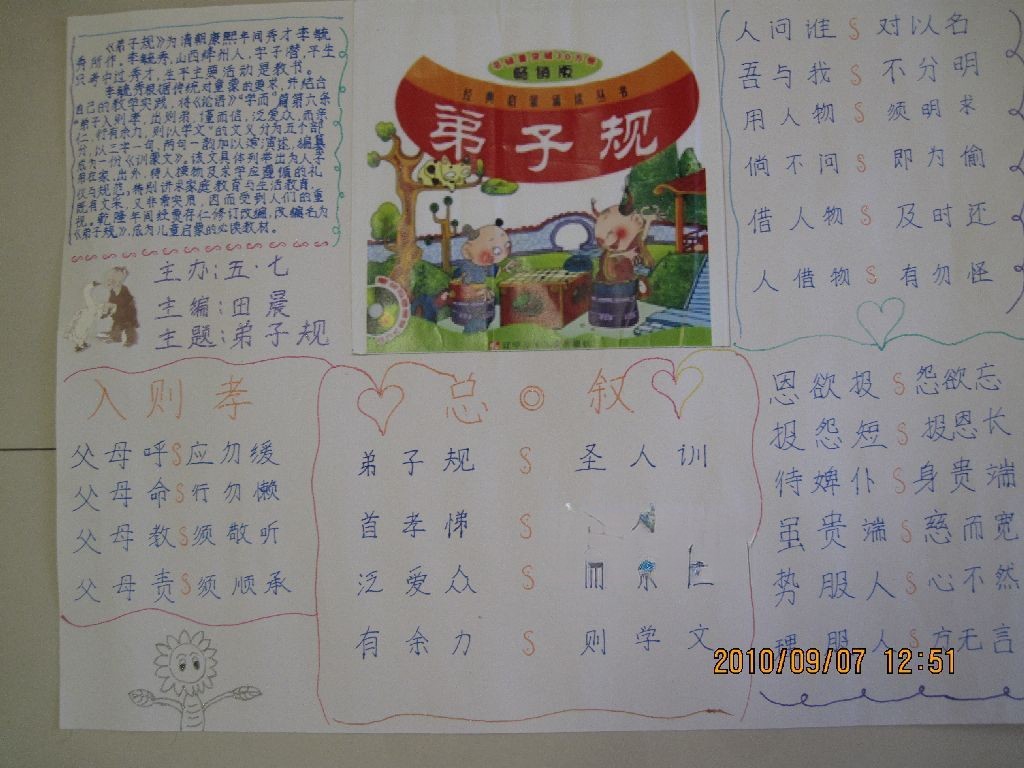 《弟子规》为清朝康熙年间秀才李毓
秀所作。李毓秀,山西绛州人,字子潜,平生
只考中过秀才,生平主要活动是教书。
李毓秀根据传统对童蒙的要求,并结合
自己的教学实践,将《论语》"学而"篇第六条
"弟子入则孝,出则弟,谨而信,泛爱众,而亲
仁,行有余力,则以学文"的文义分为五个部
分,以三字一句,两句一韵加以演述,编纂
成为一份《训蒙文》。该文具体列举出为人子
用在家、出外、待人接物及求学应遵循的礼
仪与规范,特别讲求家庭教育与生活教育,
既有文采,又非常实用,因而受到人们的重
视。乾隆年间经贾存仁修订改编,改编名为
《弟子规》,成为儿童启蒙的必读教材。
主办:五·七
主编:田晨
主题:弟子规
畅销版
经典启蒙诵读丛书
弟子规
人问谁 对以名
吾与我 不分明
用人物 须明求
倘不问 即为偷
借人物 及时还
人借物 有勿怪
入则孝
父母呼 应勿缓
父母命 行勿懒
父母教 须敬听
父母责 须顺承
总叙
弟子规 圣人训
首孝悌
泛爱众
有余力 则学文
恩欲报 怨欲忘
报怨短 报恩长
待婢仆 身贵端
虽贵端 慈而宽
势服人 心不然
理服人 方无言
2010/09/07 12:51